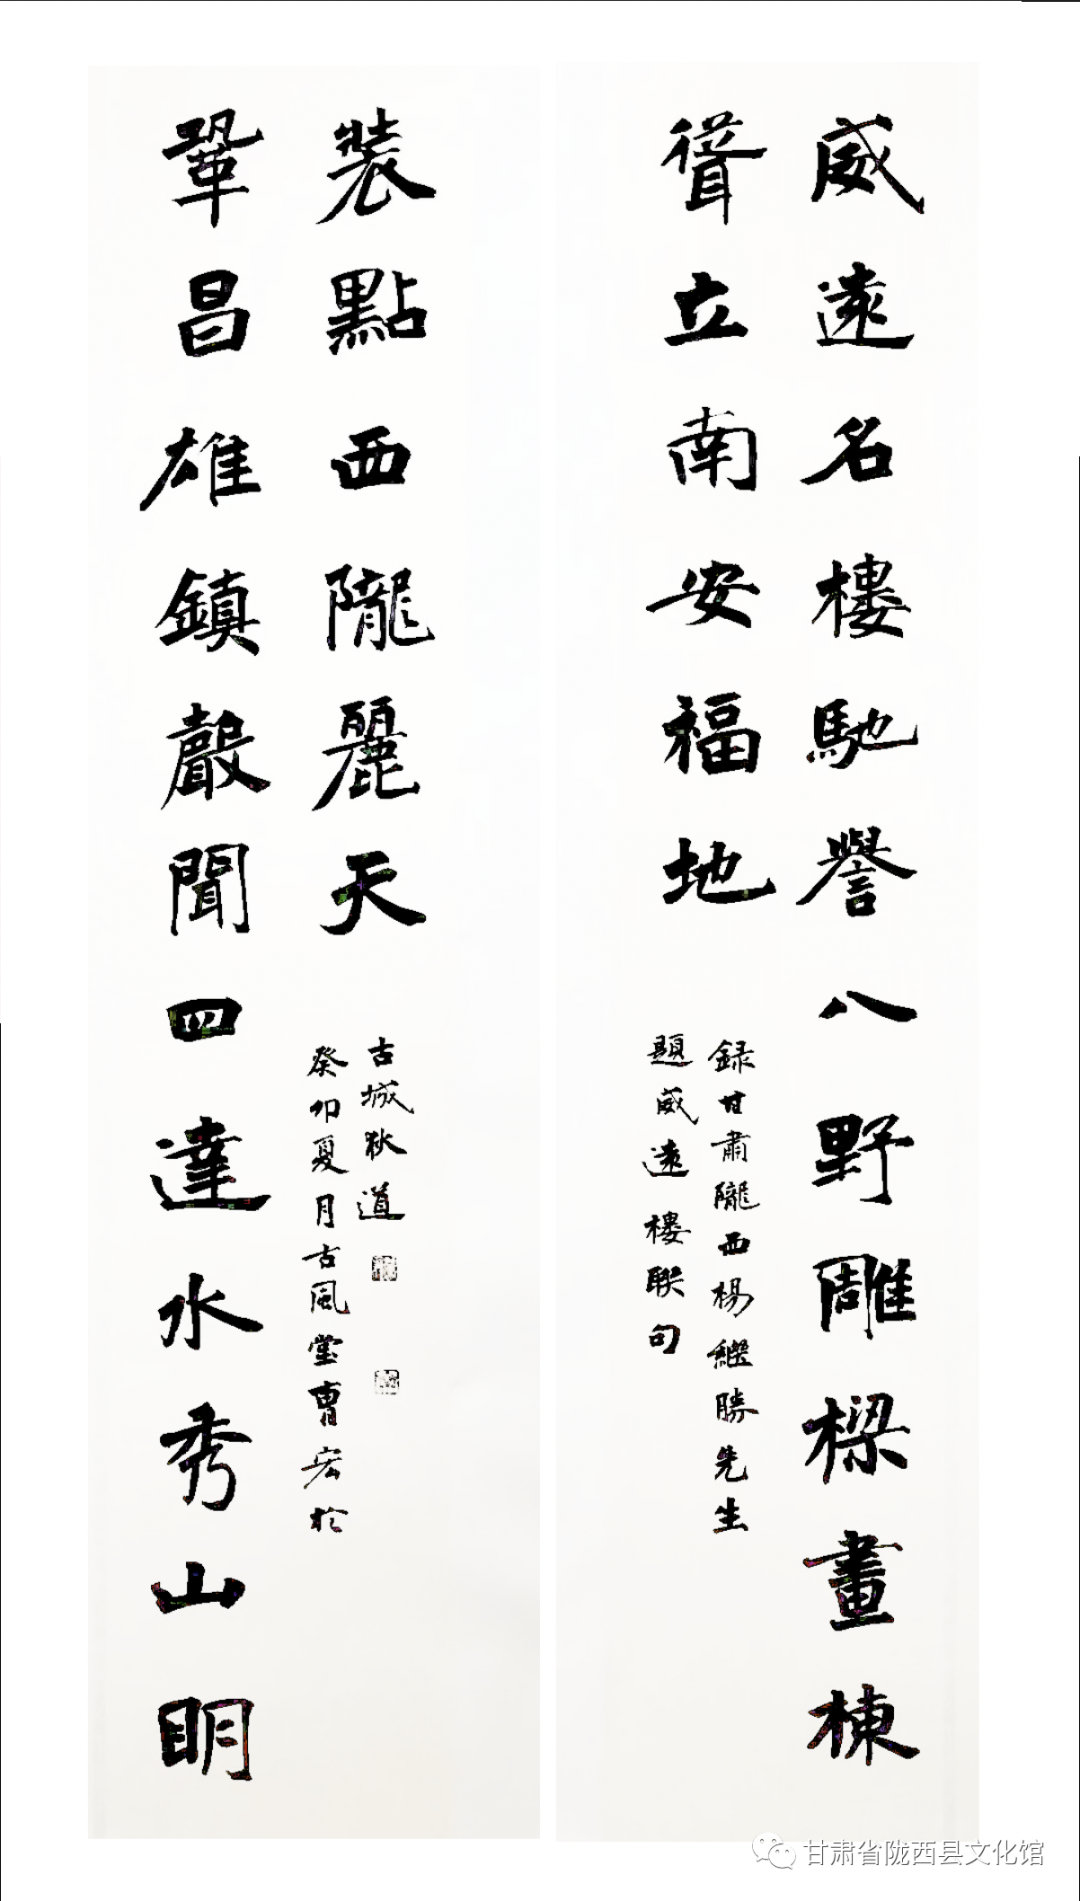 威遠名樓馳譽八野雕樑畫棟
聳立南安福地
録甘肅隴西楊繼勝先生
題威遠樓聯句
鞏昌雄鎮聲聞四達水秀山明
裝點西隴麗天
癸卯夏月古風堂曹宏於
古城狄道
甘肃省陇西县文化馆